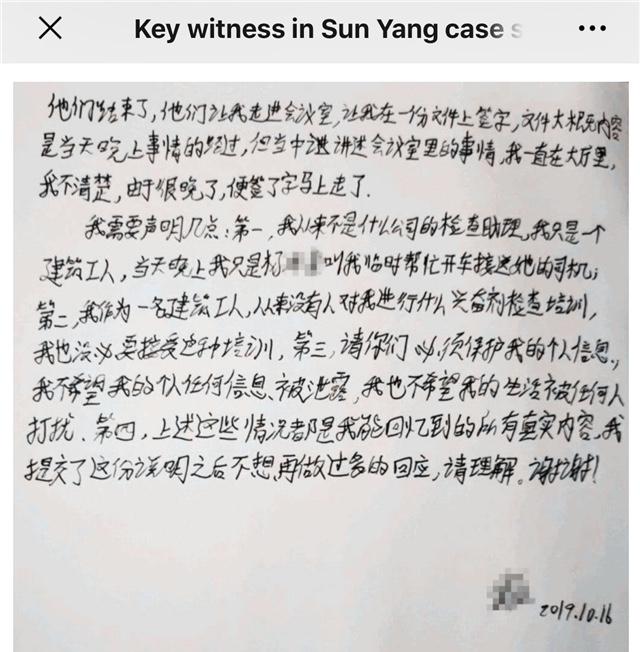 Key witness in Sun Yang case s
他们结束了，他们让我走进会议室，让我在一份文件上签字，文件大概内容
是当天晚上事情的经过，但当中讲述会议室里的事情，我一直在大厅里，
我不清楚，由于很晚了，便签了字马上走了．
我需要声明几点：第一，我从来不是什么公司的检查助理，我只是一个
建筑工人，当天晚上我只是杨 叫我临时帮忙开车接送她的司机；
第二，我作为一名建筑工人，从来没有人对我进行什么兴奋剂检查培训，
我也没必要接受这种培训，第三，请你们必须保护我的个人信息，
我不希望我的个人任何信息被泄露，我也不希望我的生活被任何人
打扰．第四，上述这些情况都是我能回忆到的所有真实内容，我
提交了这份说明之后不想再做过多的回应，请理解。谢谢！
2019.10.16